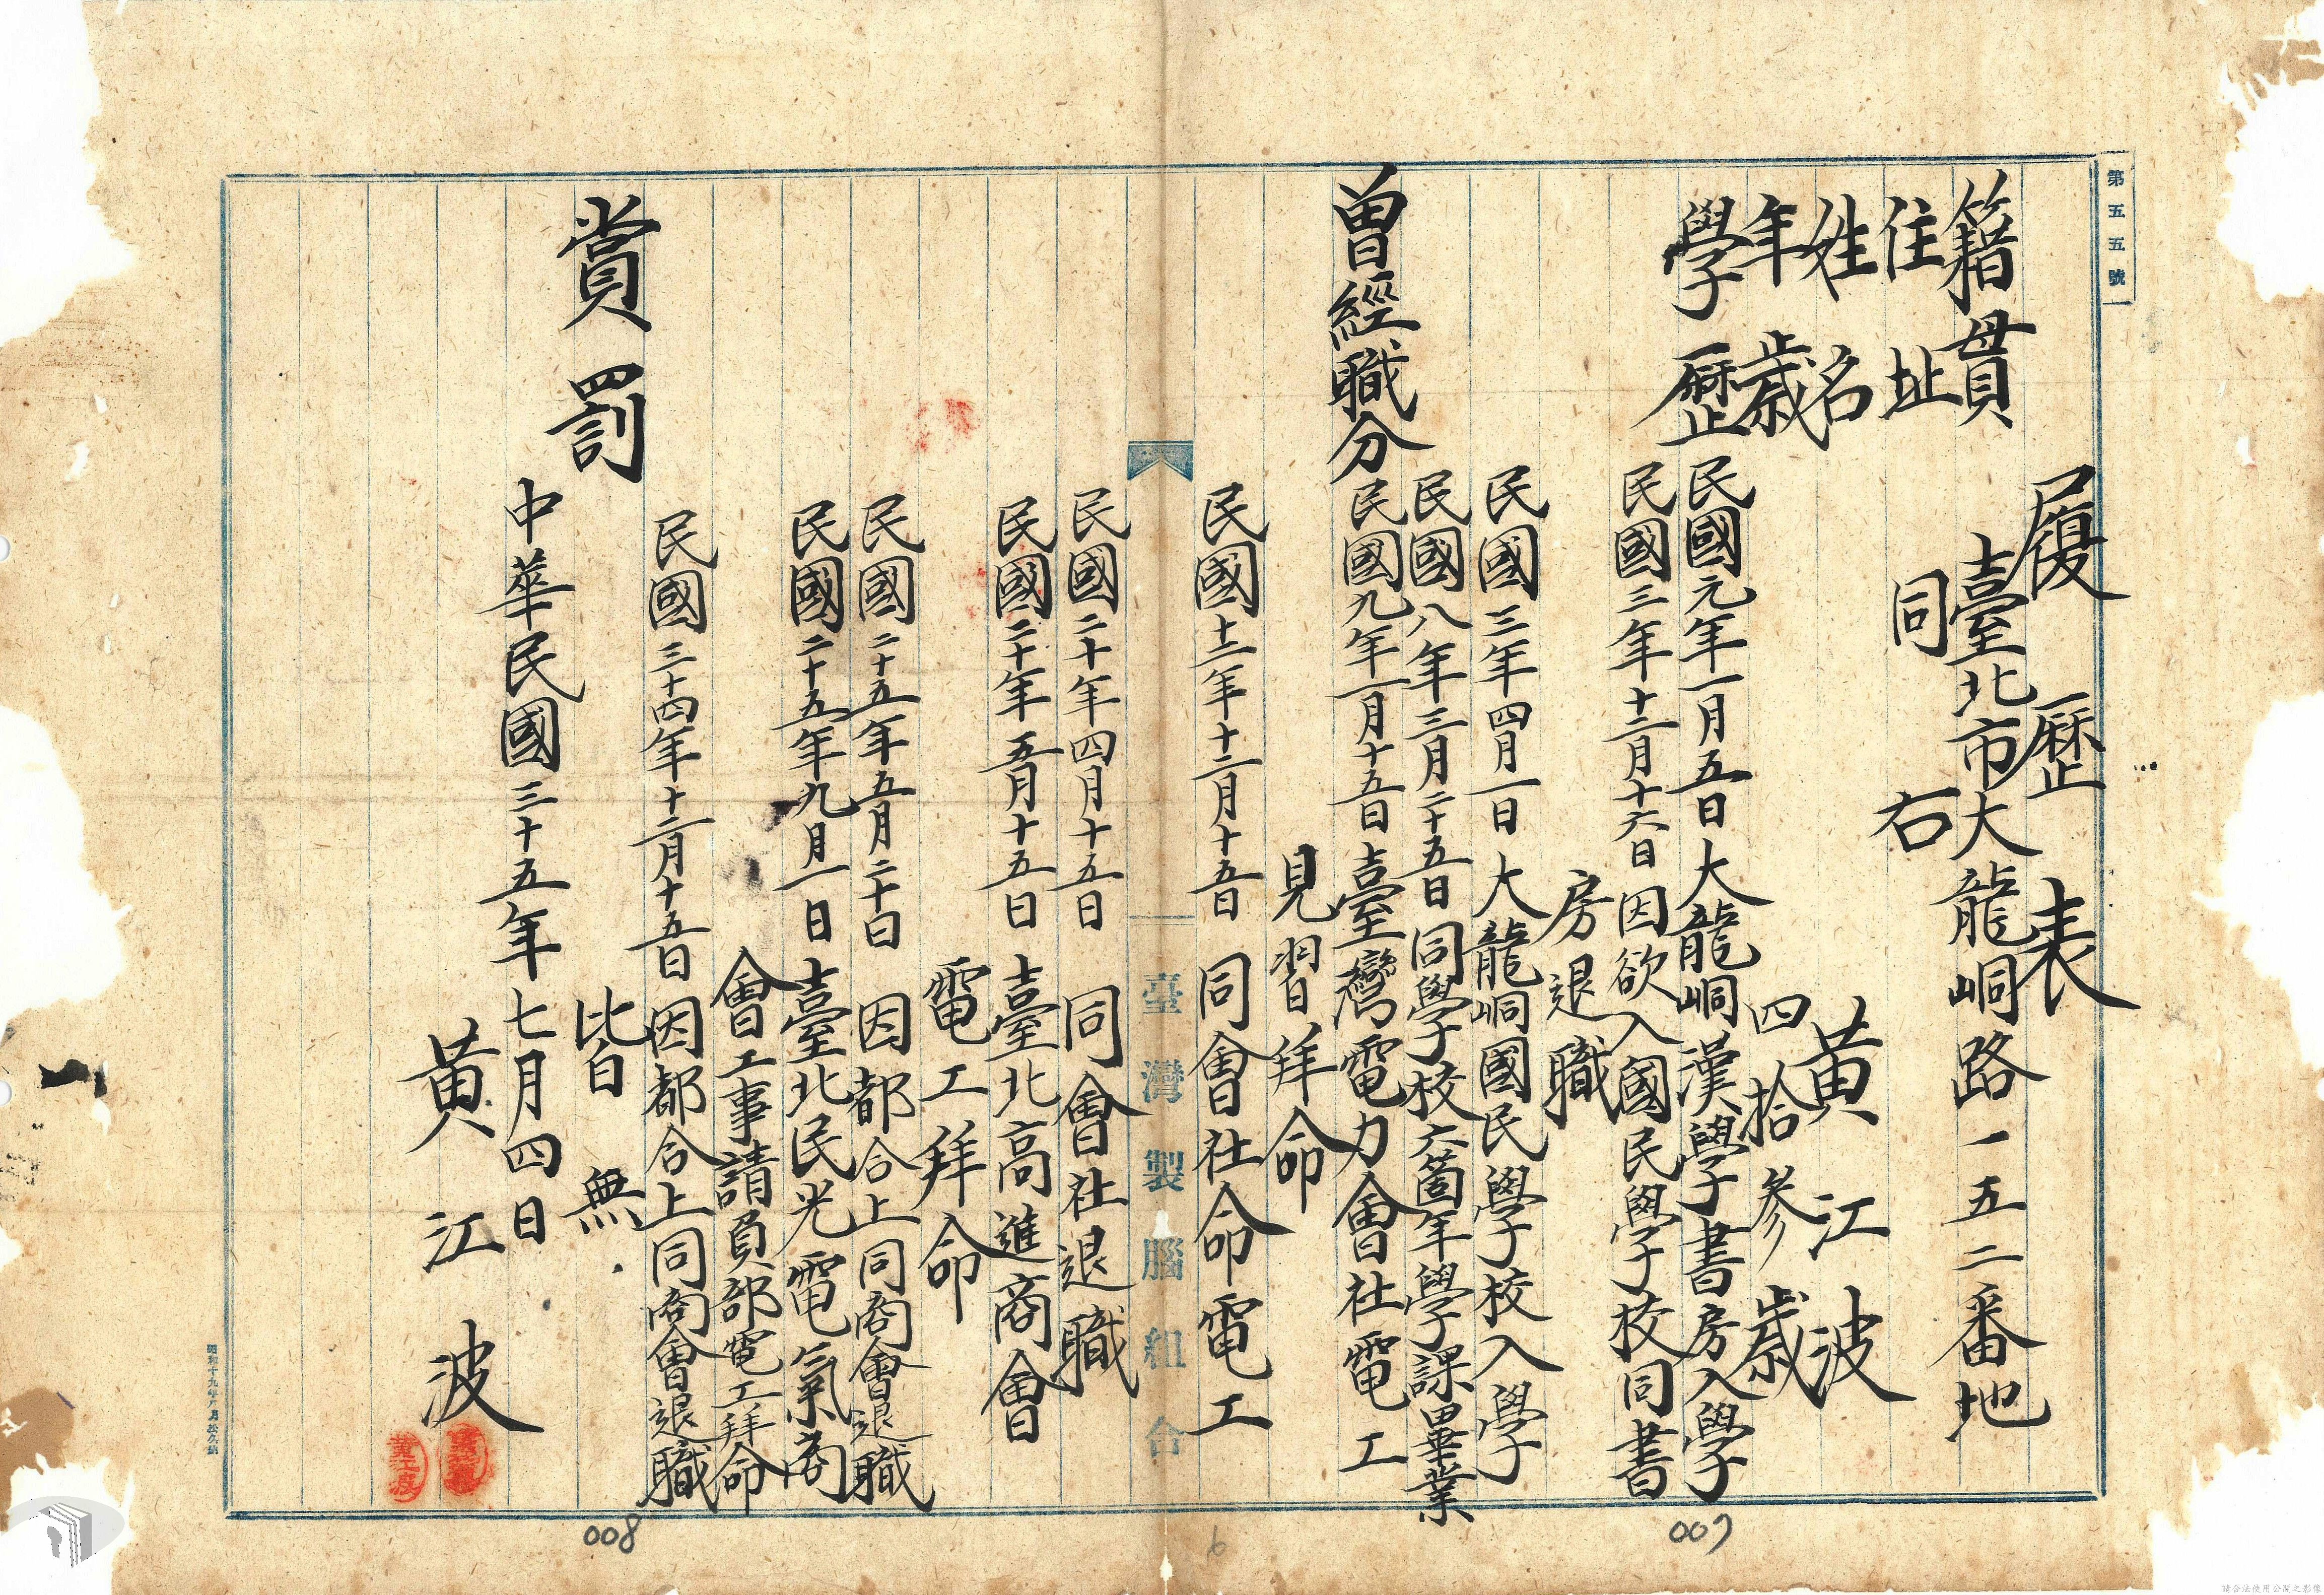 第五五號
履歷表
籍貫 臺北市大龍峒路一五二番地
住址 同右
姓名 黃江波
年歲 四拾參歲
學歷 民國元年一月五日大龍峒漢學書房入學
民國三年十二月十六日因欲入國民學校同書
房退職
民國三年四月一日大龍峒國民學校入學
民國八年三月二十五日同學校六箇年學課畢業
曾經職分 民國九年一月十五日臺灣電力會社電工
見習拜命
民國十二年十二月十五日 同會社命電工
臺灣製腦組合
民國二十年四月十五日 同會社退職
民國二十年五月十五日 臺北高進商會
電工拜命
民國二十五年五月二十日 因都合上同商會退職
民國二十五年九月一日 臺北民光電氣商
會工事請負部電工拜命
民國三十四年十二月十五日因都合上同商會退職
賞罰 皆無
中華民國三十五年七月四日
黃江波
黃江波
008
6
007